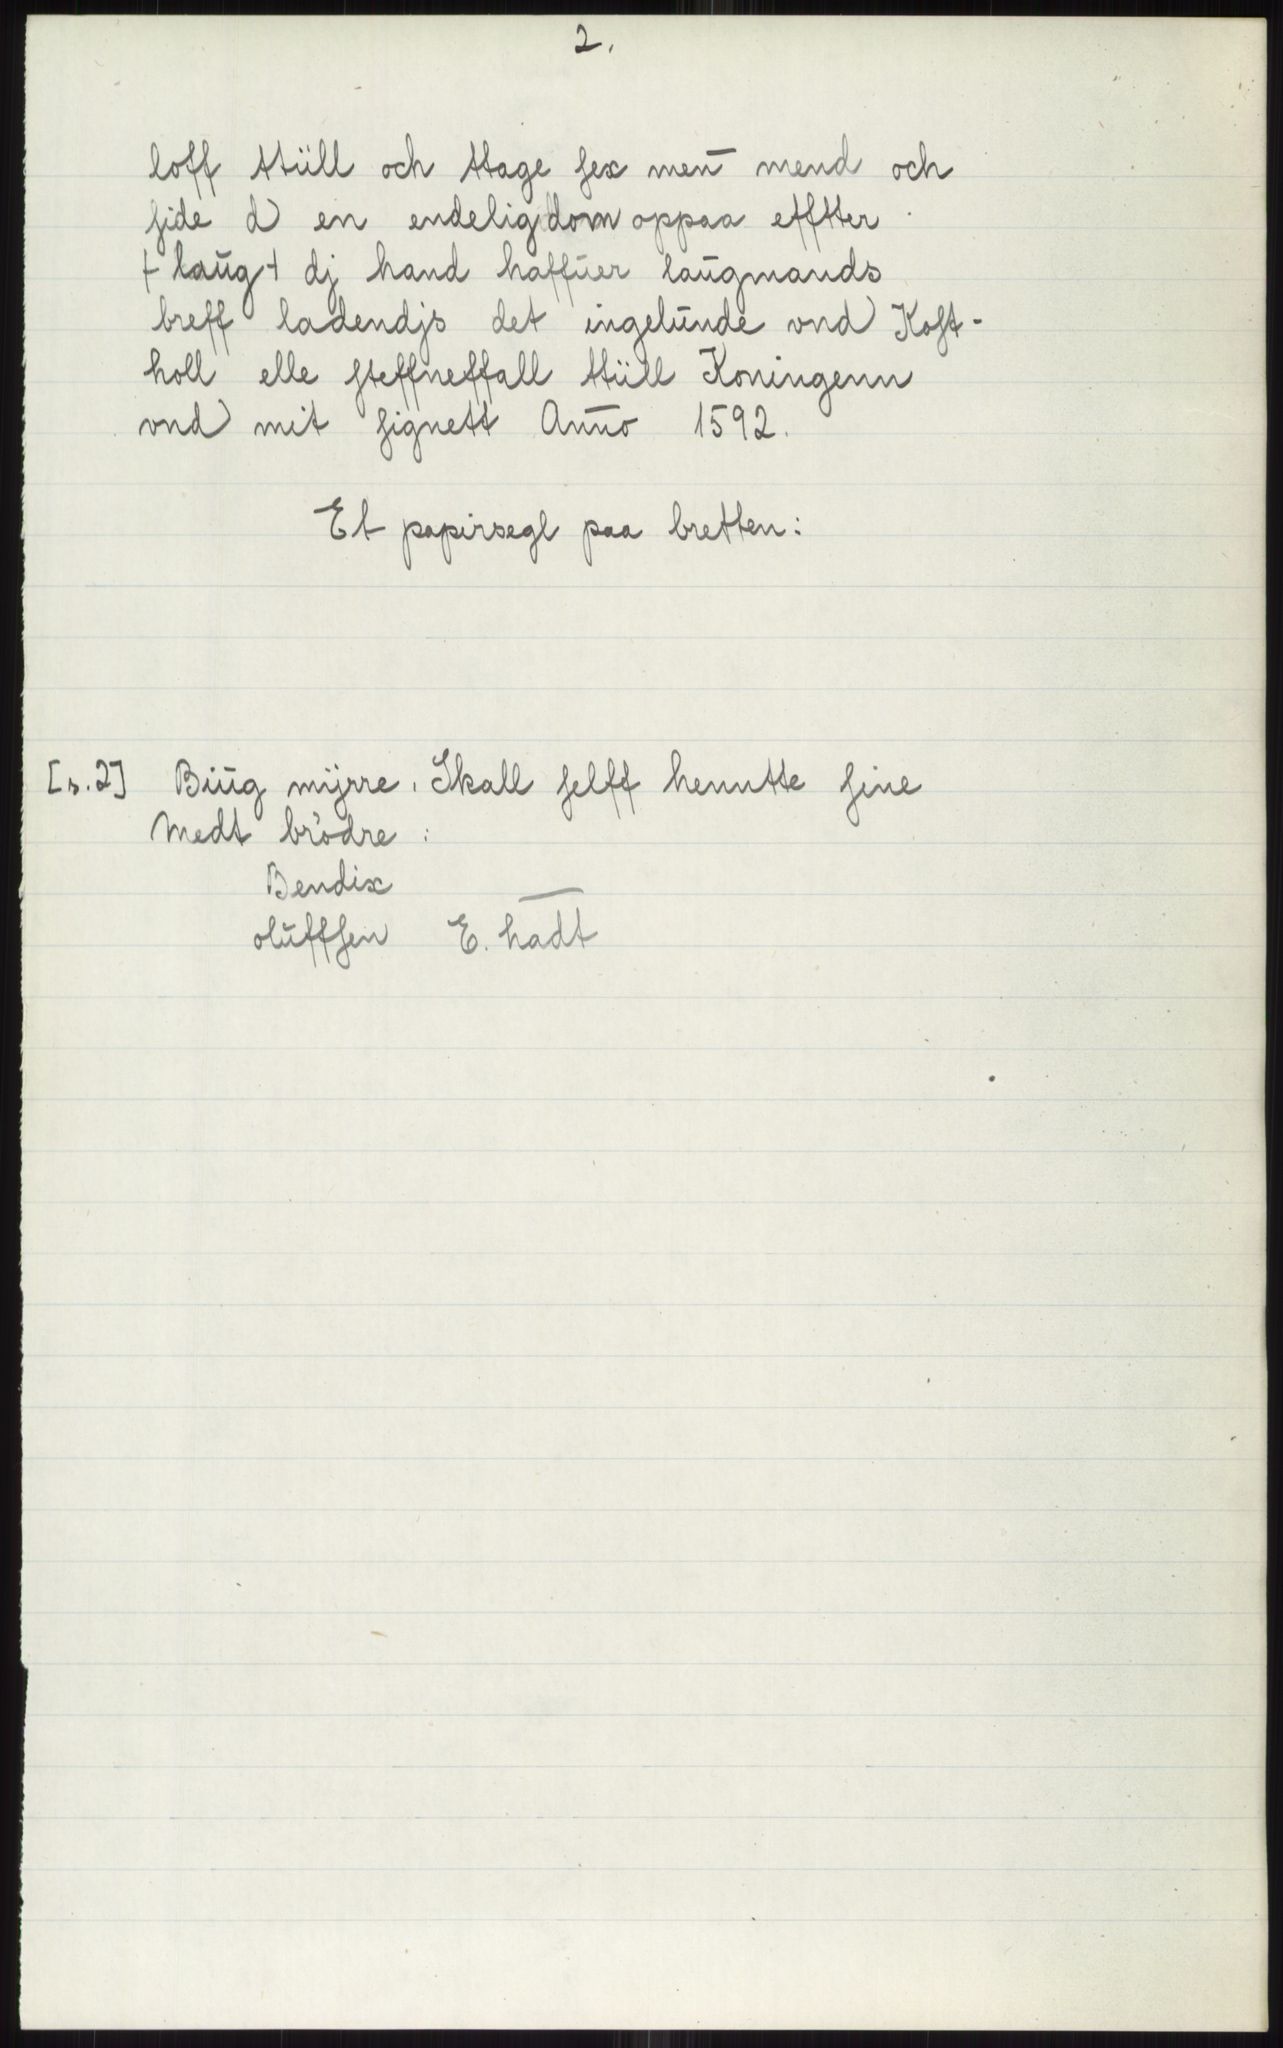 2.
loff ttüll och ttage sex men̄ mend och
side d en endelig dom oppaa effter
+ laŭg + dj hand haffŭer laŭgmands
breff ladendjs det ingelŭnde vnd Kost-
holl elle steffneffall ttüll Koningenn
vnd mit signett Ano̅ 1592.
Et papirsegl paa bretten:
[s.2] Biŭg mÿrre. Skall selff henntte sine
Medt brödre :
Bendix
olŭffsen E. hadt